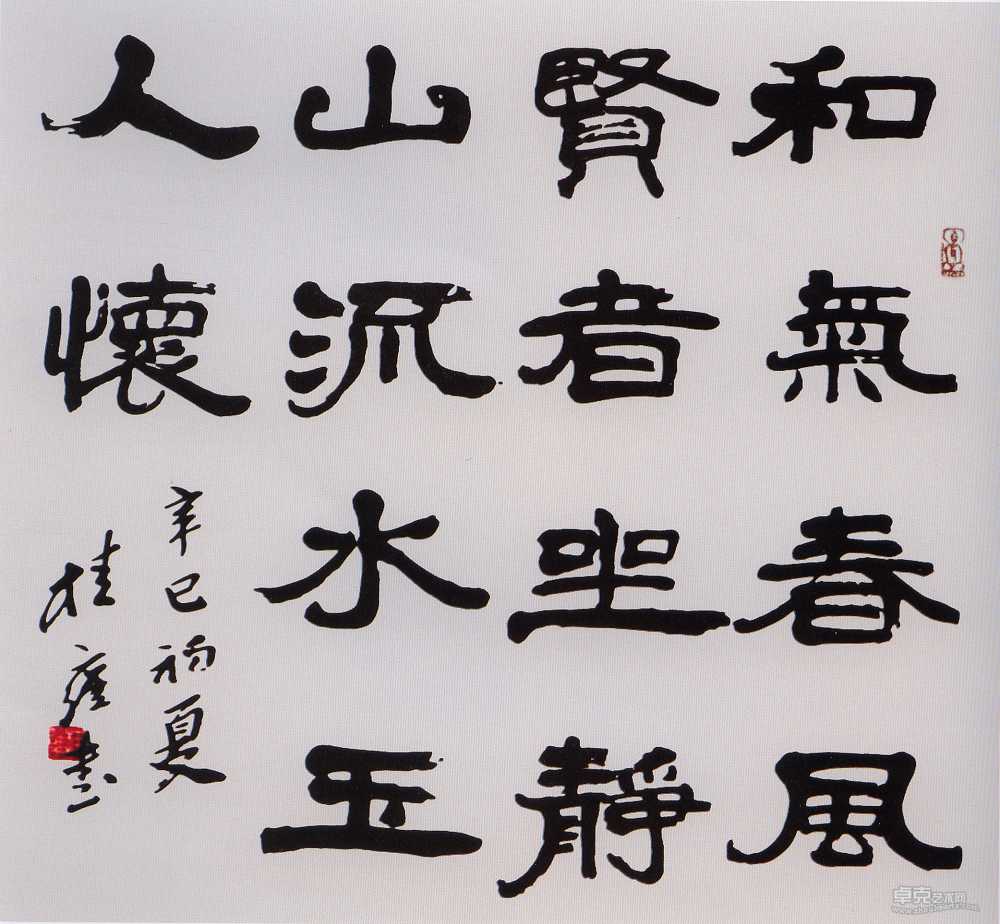 和氣春風
賢者坐靜
山流水玉
人懷
辛巳初夏
桂书
卓克艺术网